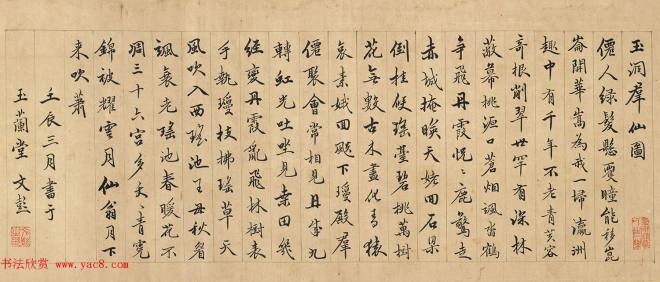 玉洞羣仙圖
僊人綠髮懸雙瞳能移崑
崙開華嵩為我一掃瀛洲
趣中有千年不老青芙蓉
奇根削翠世罕有深林
蔽幕桃源口蒼烟颯沓鶴
争飛丹霞恍惚鹿驚走
赤城掩暎天姥回石梁
倒挂候瑤臺碧桃萬樹
花無數古木盡化青猿
哀素娥回飈下瑤殿羣
僊聚會常相見丹成九
轉紅光吐坐見桑田幾
經變丹霞亂飛林樹表
手執瓊枝拂瑤草天
風吹入西瑤池王母秋眉
颯衰老瑤池春暖花不
凋三十六宮多青霓
錦被耀雲月仙翁月下
來吹蕭
壬辰三月書于
玉蘭堂 文彭
书法欣赏 www.yac8.com